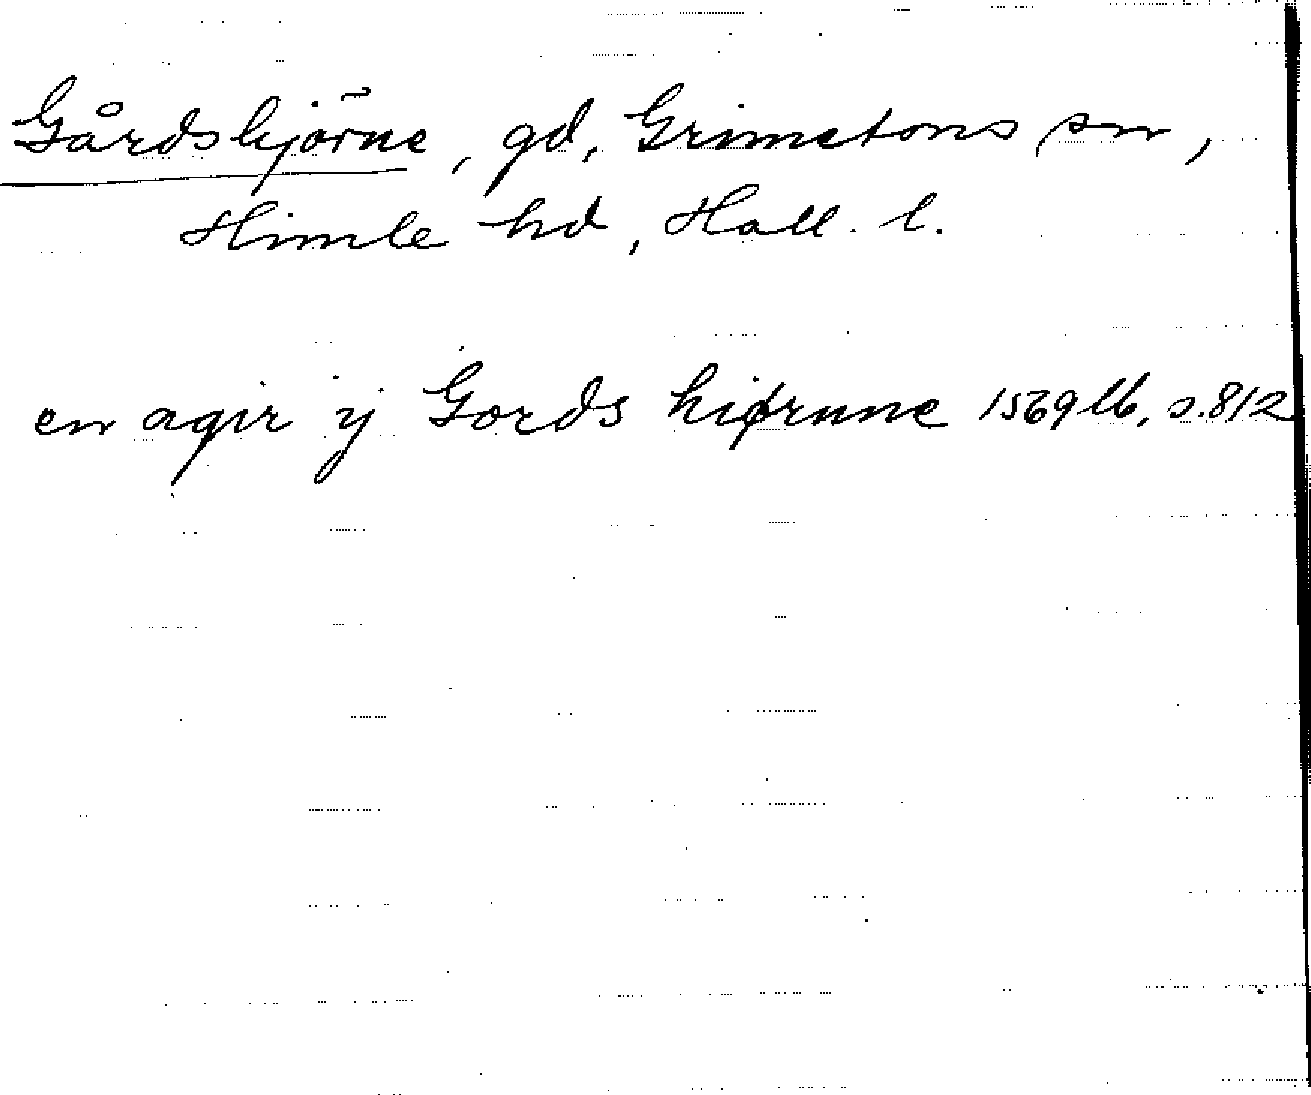 Gårdshjörne, gd, Grimetons sn,
Himle hd, Hall. l.
en agir ÿ Gords hiørnne 1569 lb, s.812